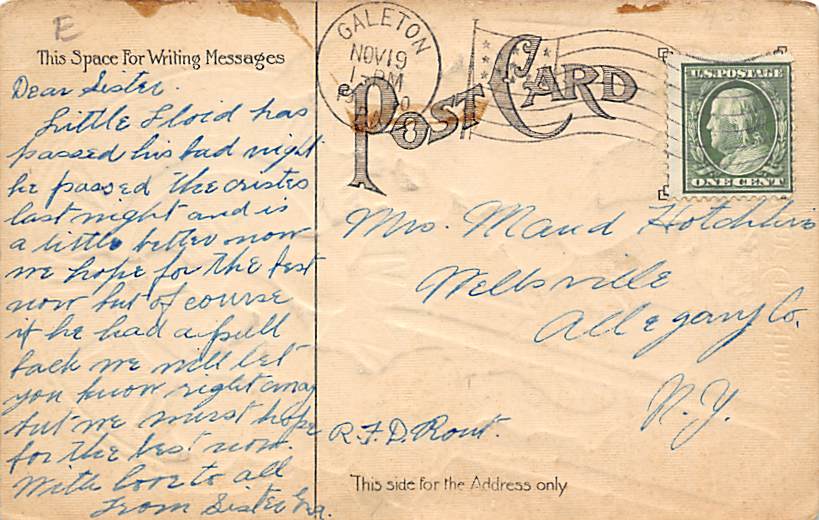 E
This Space For Writing Messages
Dear Sister.
Little Lloid has
passed his bad night
he passed the cristes
last night and is
a little better now
we hope for the best
now but of course
if he had a pull
back we will let
you know right away
but we must hope
for the best now.
With love to all
From Sister
GALETON
NOV 19
1 PM
POST CARD
U.S. POSTAGE
ONE CENT
Mrs. Maud Hotchkiss
Wellsville
Allegany Co.
N.Y.
R.F.D. Rout.
This side for the Address only